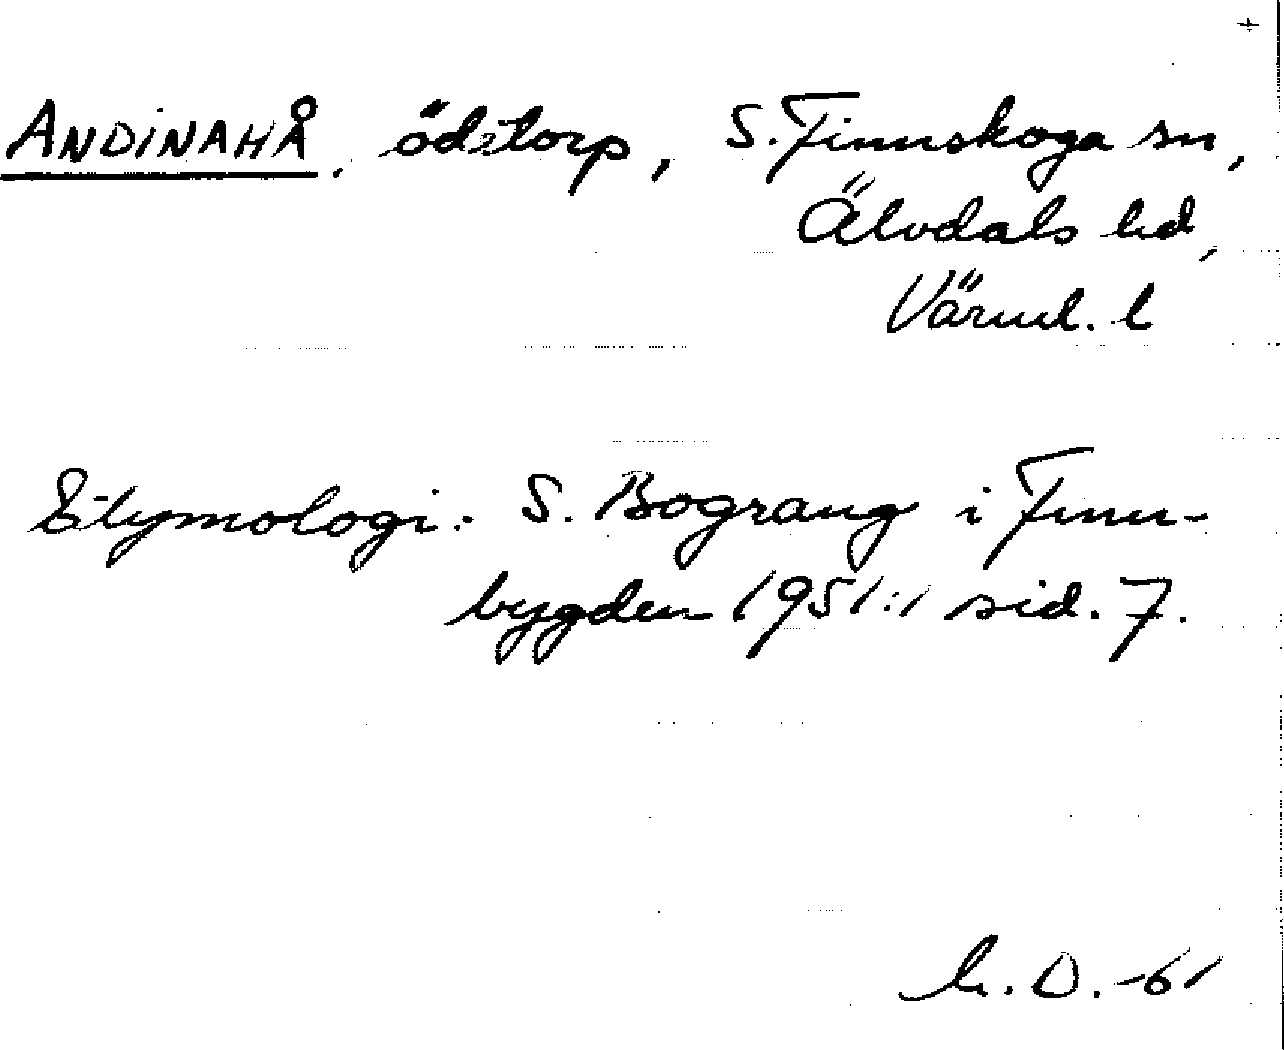 +
ANDINAHÅ, ödetorp, S. Finnskoga sn,
Älvdals hd,
Värml. l
Etymologi: S. Bograng i Finn-
bygden 1951:1 sid. 7.
h. D. -61